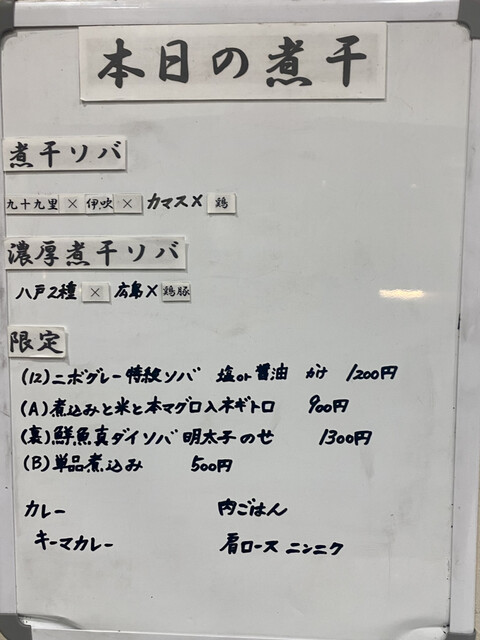 本日の煮干
煮干ソバ
九十九里 × 伊吹 × カマス × 鶏
濃厚煮干ソバ
八戸2種 × 広島 × 鶏豚
限定
(12)ニボグレー特級ソバ 塩or醤油 かけ 1200円
(A)煮込みと米と本マグロ入ネギトロ 900円
(裏)鮮魚真ダイソバ 明太子のせ 1300円
(B)単品煮込み 500円
カレー 肉ごはん
キーマカレー 肩ロース ニンニク